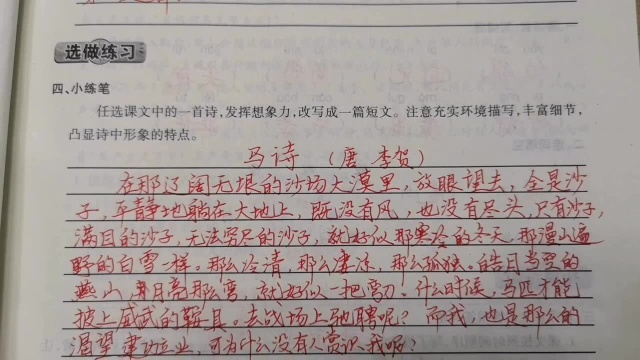 选做练习
四、小练笔
任选课文中的一首诗,发挥想象力,改写成一篇短文。注意充实环境描写,丰富细节,
凸显诗中形象的特点。
马诗 (唐 李贺)
在那辽阔无垠的沙场大漠里,放眼望去,全是沙
子,平静地躺在大地上,既没有风,也没有尽头,只有沙子,
满目的沙子,无法穷尽的沙子,就好似那寒冷的冬天,那漫山遍
野的白雪一样。那么冷清,那么凄凉,那么孤独。皓月当空的
燕山,月亮那么弯,就好似一把弯刀。什么时候,马匹才能
披上威武的鞍具。去战场上驰骋呢?而我,也是那么的
渴望建功立业,可为什么没有人赏识我呢?